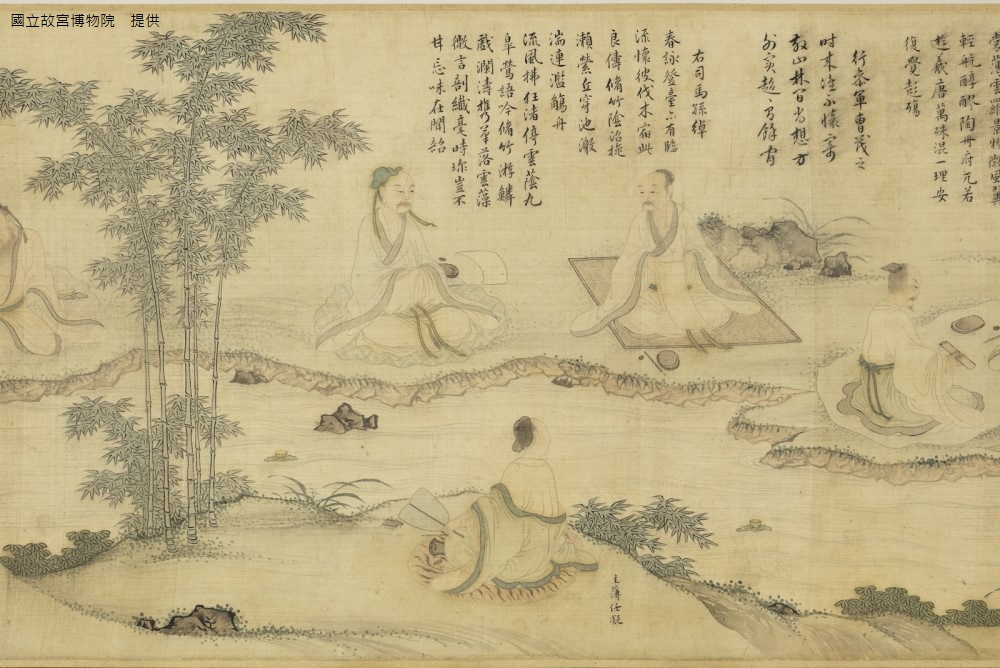 國立故宮博物院 提供
裳薄雲羅景物微風翼
輕航醇醪陶丹府兀若
遊羲唐萬殊混一理安
復覺彭殤
行參軍曹茂之
時來誰不懷寄
散山林間尚想方
外賓超〻有餘閒
右司馬孫綽
春詠登臺亦有臨
流懷彼伐木宿此
良儔脩竹蔭沼旋
瀨縈丘穿池激
湍連濫觴舟
流風拂枉渚停雲蔭九
皐鶯語吟脩竹游鱗
戲瀾濤攜筆落雲藻
微言剖纖毫時珍豈不
甘忘味在聞韶
主薄任凝